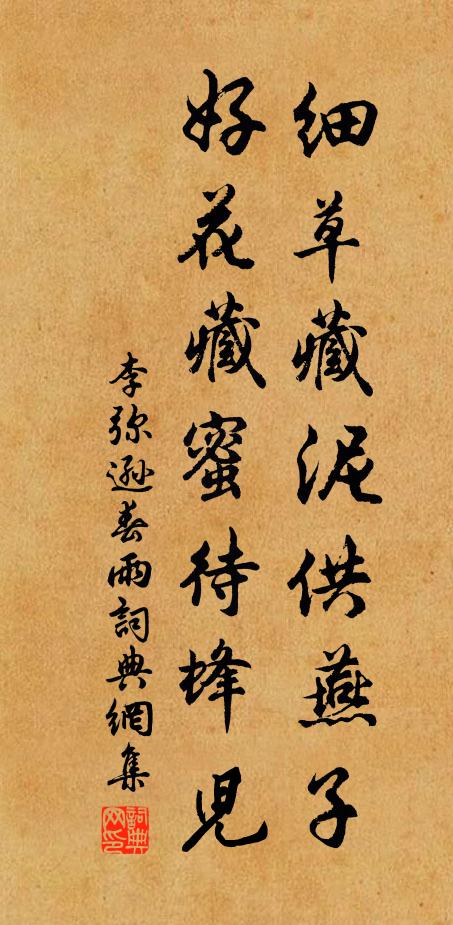 细草藏泥供燕子
好花藏蜜待蜂児
李弥遜春雨詞典網集
詞典網印